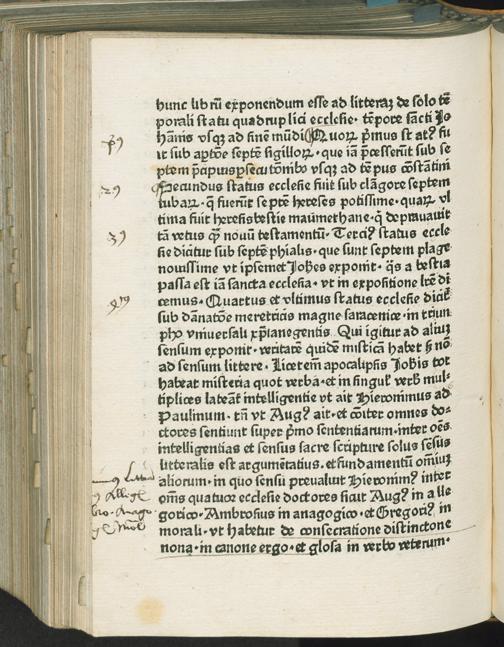 hunc librū exponendum esse ad litteraȝ de solo tē
porali statu quadruplici ecclesie · tēpore sācti Jo
hānis vsqȝ ad finē mūdi Quoꝝ pͥmus stat⁹ fu
it sub aptōe septē sigilloꝝ · que iā p̄cesserūt sub se
ptem p̄cipuis ꝑsecutōnibꝰ vsqȝ ad tēpus cōstātini
Secundus status ecclesie fuit sub clāgore septem
tubaꝝ · q̄ fuerūt septē hereses potissime · quaꝝ vl
tima fuit heresis bestie maumethane · q̄ deprauauit
tā vetus qͣ̄ nouū testamentū · Terciꝰ status eccle
sie dicitur sub septē phialis · que sunt septem plage
nouissime vt ipsemet Johēs exponit · q̄s a bestia
passa est iā sancta ecclesia · vt in expositione lr̄e di
cemus · Quartus et vltimus status ecclesie dicit̄
sub dānatōe meretricis magne saracenice · in trium
pho vniuersali xp̄iane gentis Qui igitur ad aliuȝ
sensum exponit · veritatē quidē misticā habet sȝ nō
ad sensum littere · Licet em̄ apocalipsis Johīs tot
habeat misteria quot verba · et in singul' verb' mul-
tiplices lateāt intelligentie vt ait Hieronimus ad
Paulinum · tn̄ vt Aug⁹ ait · et cōiter omnes do-
ctores sentiunt super pͥmo sententiarum · inter oēs
intelligentias et sensus sacre scripture solus sēsus
litteralis est argumētatiuus · et fundamentū omniuȝ
aliorum · in quo sensu preualuit Hieronimꝰ inter
om̄s quatuor ecclesie doctores sicut Aug⁹ in alle
gorico · Ambrosius in anagogico · et Gregoriꝰ in
morali · vt habetur de consecratione distinctone
nona · in canone ergo · et glosa in verbo veterum ·